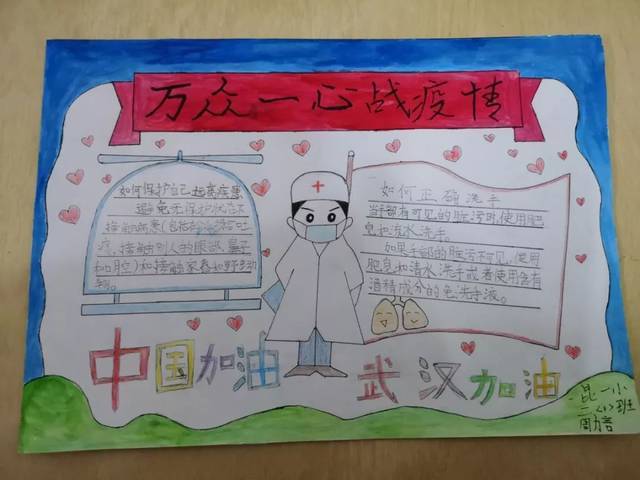 万众一心战疫情
如何保护自己远离病毒
避免无保护状态下
接触病患(包括
接触别人的眼部、鼻子
和口腔)和接触家畜和野生动
物。
如何正确洗手
当手部有可见的脏污时,使用肥
皂和流水洗手。
如果手部的脏污不可见,使用
肥皂和清水洗手或者使用含有
酒精成分的免洗手液。
中国加油
武汉加油
昆一小
二〈1〉班